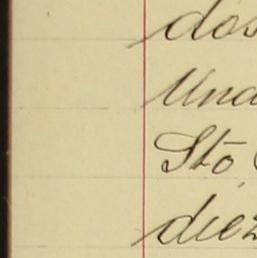 dos
Una
Sto
diez